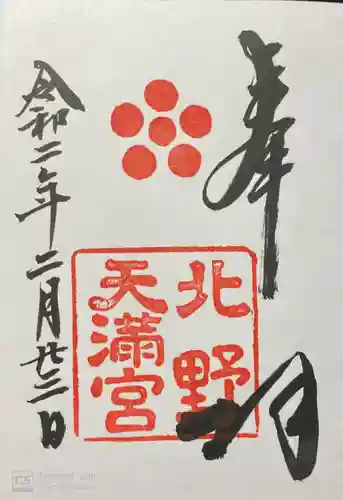 奉拝
北野
天満宮
令和二年二月廿三日
CS